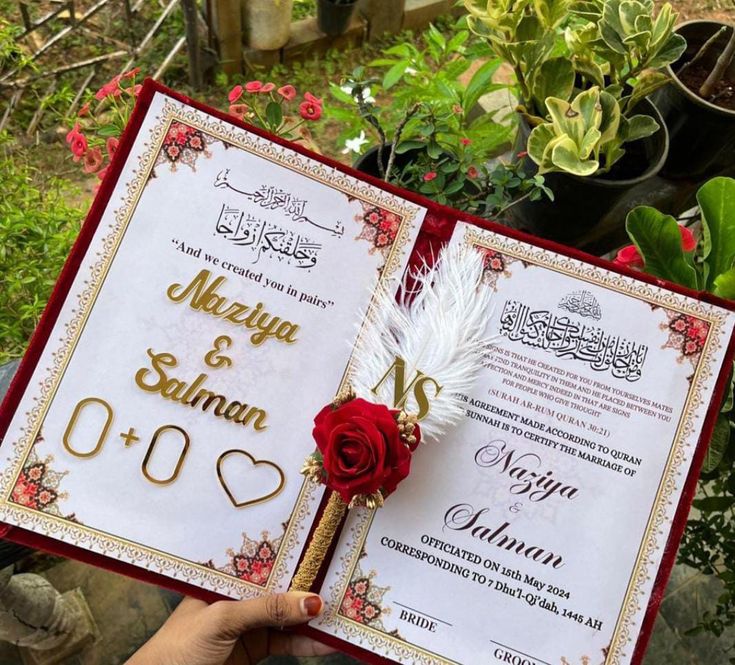 بسم الله الرحمن الرحيم
وخلقنكم ازواجا
“And we created you in pairs”
Naziya
&
Salman
0 + 0 ♡
NS
SIGNS IS THAT HE CREATED FOR YOU FROM YOURSELVES MATES
TRANQUILITY IN THEM AND HE PLACED BETWEEN YOU
AFFECTION AND MERCY INDEED IN THAT ARE SIGNS
FOR PEOPLE WHO GIVE THOUGHT
(SURAH AR-RUM QURAN 30:21)
AGREEMENT MADE ACCORDING TO QURAN
SUNNAH IS TO CERTIFY THE MARRIAGE OF
Naziya
&
Salman
OFFICIATED ON 15th May 2024
CORRESPONDING TO 7 Dhu'l-Qi'dah, 1445 AH
BRIDE
GROOM